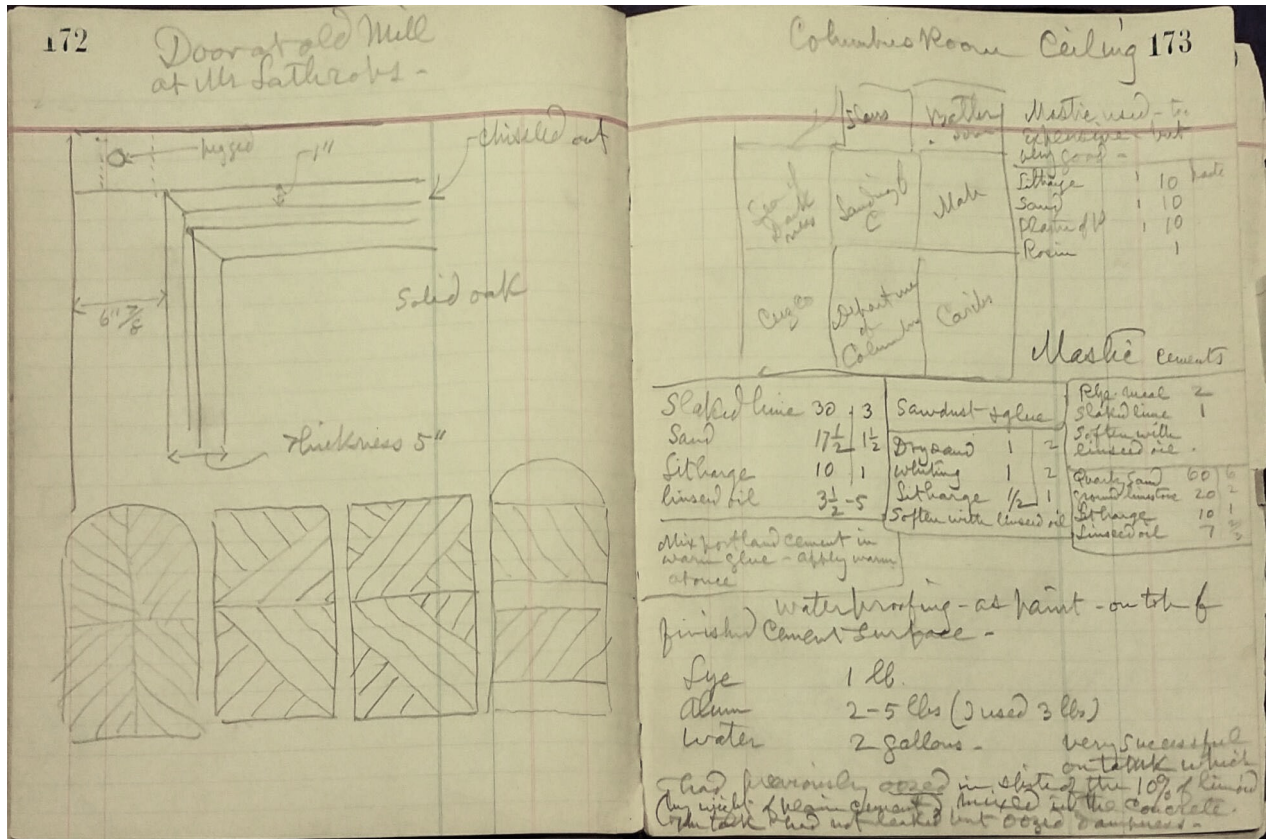 172
Door at old Mill
at Mr Lathrops -
pegged
1"
chiseled out
Solid oak
6" 7/8
Thickness 5"
Columbus Room Ceiling 173
Slaves
Mastic used - too
expensive - but
very good -
Litharge 1 10
Sand 1 10
Plaster of P 1 10
Rosin 1
Sea
Darkness
Landing of
C
Cuzco
Departure
of
Columbus
Caribs
Mastic cements
Slaked lime 30 3
Sand 17½ 1½
Litharge 10 1
linseed oil 3½-5
Sawdust & glue
Dry sand 1 2
Whiting 1 2
Litharge 1/2 1
Soften with linseed oil
Rye meal 2
Slaked lime 1
Soften with
linseed oil.
Quartz Sand 60 6
Ground limestone 20 2
Litharge 10 1
Linseed oil 7
Mix portland cement in
warm glue - apply warm
at once
Waterproofing - as paint - on top of
finished Cement Surface -
Lye 1 lb.
Alum 2-5 lbs (I used 3 lbs)
Water 2 gallons -
very successful
on tank which
had previously oozed in spite of the 10% of linseed
(by weight of plain cement) mixed in the concrete.
The tank had not leaked but oozed dampness -